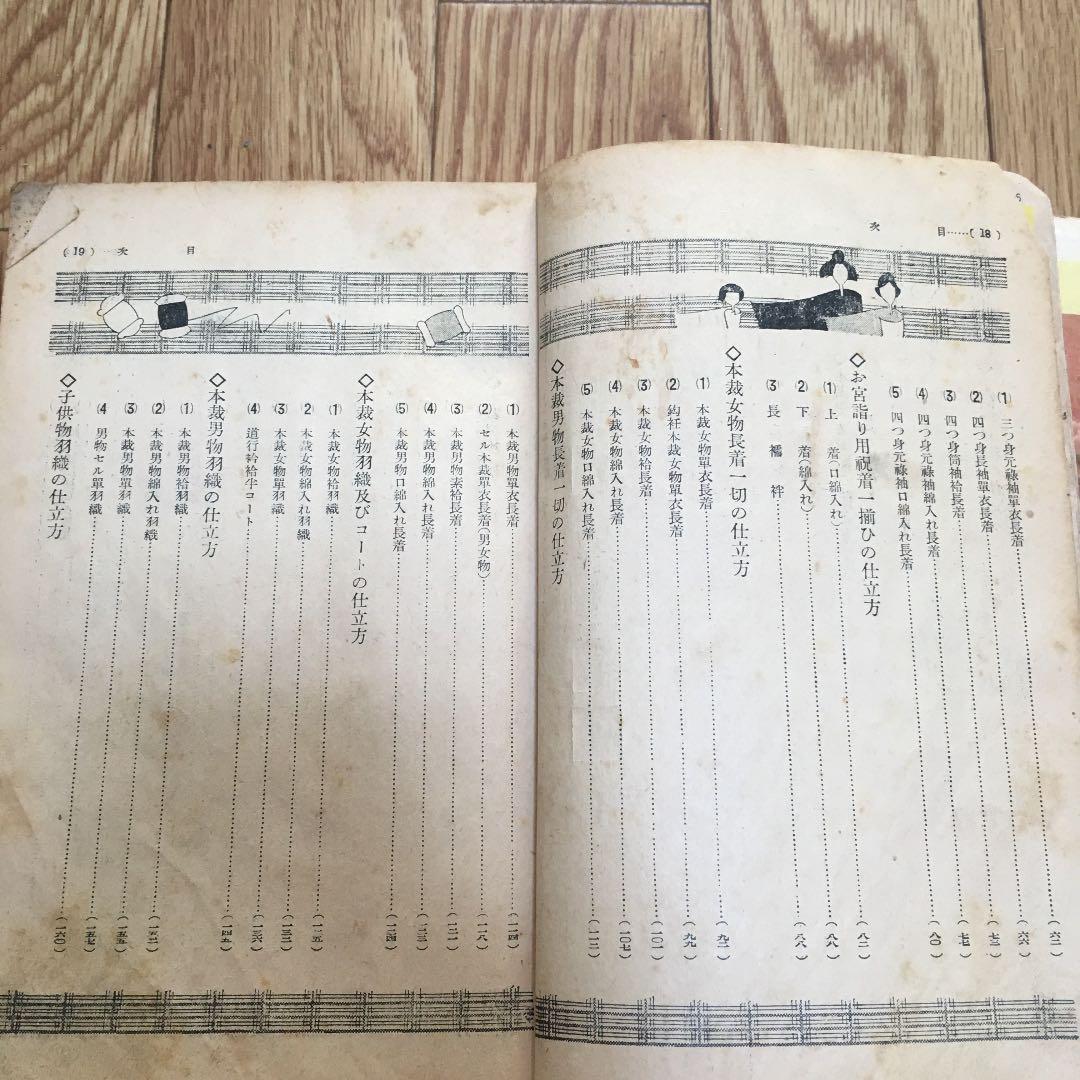 目……(18)
次
(1) 三つ身元祿袖單衣長着…(六二)
(2) 四つ身長袖單衣長着…(六六)
(3) 四つ身筒袖袷長着…(七二)
(4) 四つ身元祿袖綿入れ長着…(七七)
(5) 四つ身元祿袖口綿入れ長着…(八〇)
◇お宮詣り用祝着一揃ひの仕立方
(1) 上着(口綿入れ)…(八二)
(2) 下着(綿入れ)…(八八)
(3) 長襦袢…(八八)
◇本裁女物長着一切の仕立方
(1) 本裁女物單衣長着…(九二)
(2) 鈎衽本裁女物單衣長着…(九九)
(3) 本裁女物袷長着…(一〇一)
(4) 本裁女物綿入れ長着…(一〇七)
(5) 本裁女物口綿入れ長着…(一一二)
◇本裁男物長着一切の仕立方
目次…(19)
(1) 本裁男物單衣長着…(一一四)
(2) セル本裁單衣長着(男女物)…(一一八)
(3) 本裁男物素袷長着
(4) 本裁男物綿入れ長着
(5) 本裁男物口綿入れ長着…(一二四)
◇本裁女物羽織及びコートの仕立方
(1) 本裁女物袷羽織
(2) 本裁女物綿入れ羽織
(3) 本裁女物單羽織…(一三六)
(4) 道行袷半コート…(一四九)
◇本裁男物羽織の仕立方
(1) 本裁男物袷羽織
(2) 本裁男物綿入れ羽織
(3) 本裁男物單羽織…(一五五)
(4) 男物セル單羽織…(一五七)
◇子供物羽織の仕立方…(一六〇)